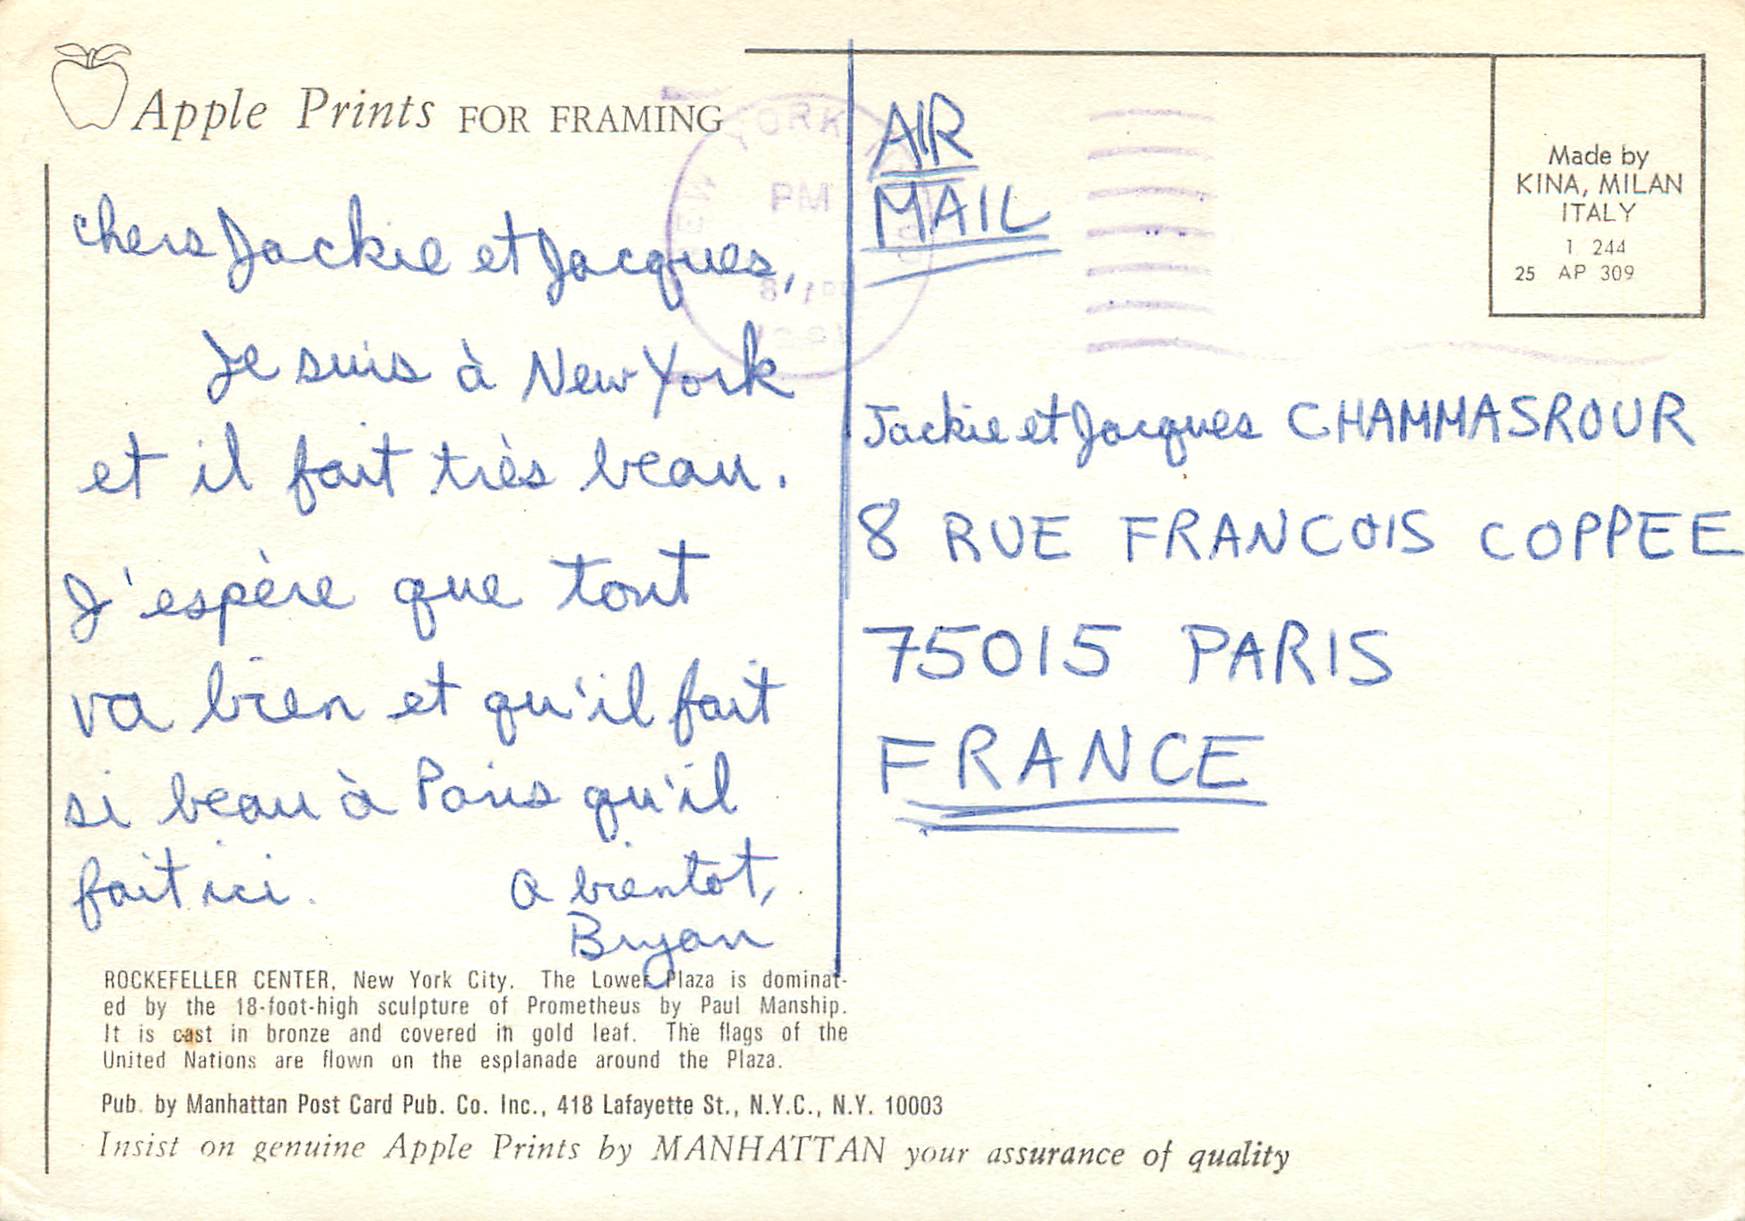 Apple Prints FOR FRAMING
YORK
PM
chers Jackie et Jacques,
Je suis à New York
et il fait très beau.
J'espère que tout
va bien et qu'il fait
si beau à Paris qu'il
fait ici.
a bientot,
Bryan
ROCKEFELLER CENTER, New York City. The Lower Plaza is dominat-
ed by the 18-foot-high sculpture of Prometheus by Paul Manship.
It is cast in bronze and covered in gold leaf. The flags of the
United Nations are flown on the esplanade around the Plaza.
Pub. by Manhattan Post Card Pub. Co. Inc., 418 Lafayette St., N.Y.C., N.Y. 10003
Insist on genuine Apple Prints by MANHATTAN your assurance of quality
AIR
MAIL
Made by
KINA, MILAN
ITALY
1 244
25 AP 309
Jackie et Jacques CHAMMASROUR
8 RUE FRANCOIS COPPEE
75015 PARIS
FRANCE